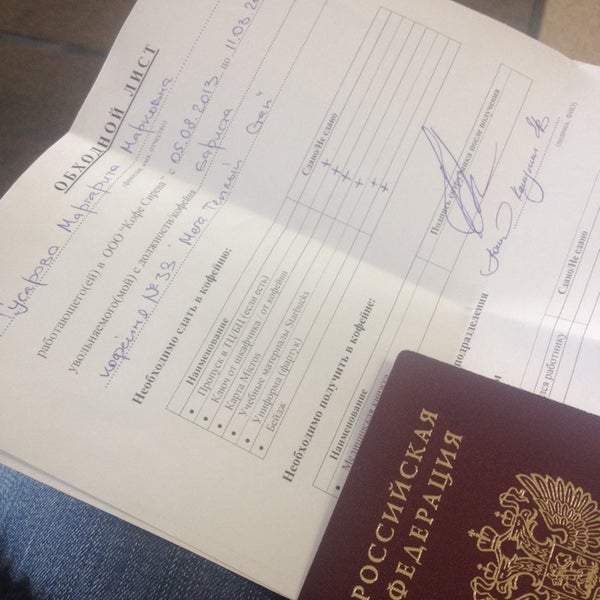 ОБХОДНОЙ ЛИСТ
Маргарита Марковна
(фамилия, имя, отчество)
работающего(ей) в ООО "Кофе Сирена" с 05.08.2013 по 11.03.20
увольняемого(мой) с должности/кофейня бариста
кофейня №39 "Мега Теплый Стан"
Необходимо сдать в кофейню:
Наименование Сдано/Не сдано
• Пропуск в ТЦ/БЦ (если есть) +
• Ключ от шкафчика / от кофейни +
• Карта Micros +
• Учебные материалы Starbucks +
• Униформа (фартук) +
• Бейдж +
Необходимо получить в кофейне:
Наименование Подпись сотрудника после получения
• Медицинская
подразделения
(подпись, ФИО)
Сдано/Не сдано
работнику
РОССИЙСКАЯ
ФЕДЕРАЦИЯ